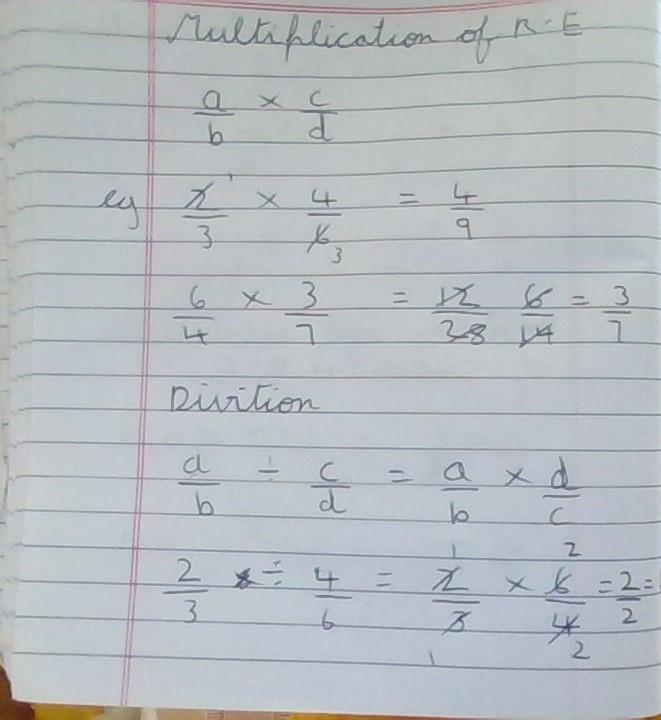 Multiplication of R.E
a/b × c/d
eg 2/3 × 4/6 = 4/9
1 3
6/4 × 3/7 = 12/28 6/14 = 3/7
Divition
a/b ÷ c/d = a/b × d/c
2/3 ÷ 4/6 = 2/3 × 6/4 = 2/2 =
1 2
1 2